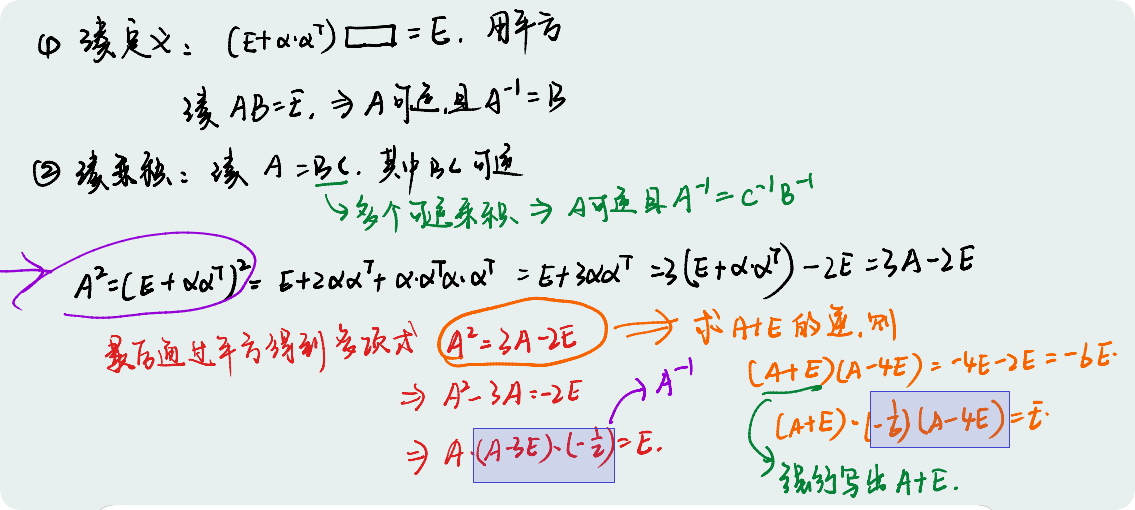 ① 凑定义: (E+α·αᵀ) ▭ = E. 用平方
凑 AB=E. ⇒ A可逆,且 A⁻¹=B
② 凑乘积: 凑 A=BC. 其中BC可逆
↳ 多个可逆乘积 ⇒ A可逆且A⁻¹=C⁻¹B⁻¹
A²=(E+ααᵀ)²=E+2ααᵀ+α·αᵀα·αᵀ=E+3ααᵀ=3(E+α·αᵀ)-2E=3A-2E
最后通过平方得到多项式 A²=3A-2E → 求A+E的逆,则
⇒ A²-3A=-2E → A⁻¹
(A+E)(A-4E)=-4E-2E=-6E.
⇒ A·(A-3E)·(-½)=E.
(A+E)·(-⅙)(A-4E)=E.
强行写出A+E.